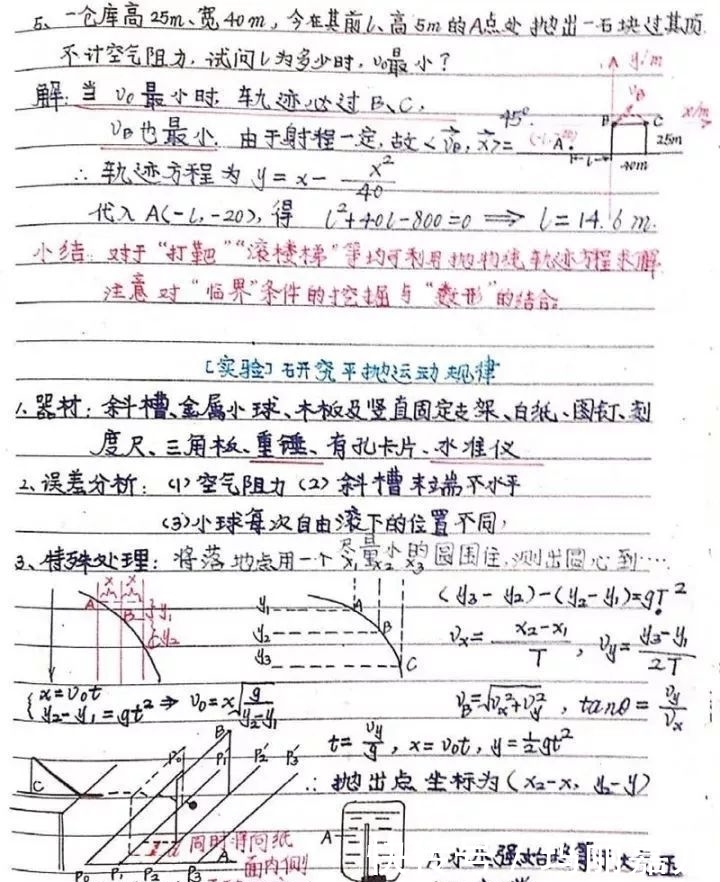 5、一仓库高25m、宽40m，今在其前l、高5m的A点处抛出一石块过其顶
不计空气阻力，试问l为多少时，v₀最小？
y/m
解：当v₀最小时，轨迹必过B、C，
v_B
x/m
B C
v_B也最小，由于射程一定，故<v⃗_B，x⃗>=45°
A
25m
l
40m
∴轨迹方程为 y=x-x²/40
代入A(-l,-20)，得 l²+40l-800=0 ⟹ l=14.6m.
小结：对于“打靶”“滚楼梯”等均可利用抛物线轨迹方程来解
注意对“临界”条件的挖掘与“数形”的结合。
[实验]研究平抛运动规律
1、器材：斜槽、金属小球、木板及竖直固定支架、白纸、图钉、刻
度尺、三角板、重锤、有孔卡片、水准仪
2、误差分析：(1)空气阻力 (2)斜槽末端不水平
(3)小球每次自由滚下的位置不同，
3、特殊处理：将落地点用一个尽量小的圆围住，测出圆心到……
x x
A B y₁ y₂
x₁ x₂ x₃
y₁ y₂ y₃
A B C
(y₃-y₂)-(y₂-y₁)=gT²
v_x=(x₂-x₁)/T，v_y=(y₃-y₁)/2T
{x=v₀t
y₂-y₁=gt² ⇒ v₀=x√(g/(y₂-y₁))
v_B=√(v_x²+v_y²)，tanθ=v_y/v_x
t=v_y/g，x=v₀t，y=½gt²
∴抛出点坐标为(x₂-x，y₂-y)
C
B
P₀' P₁' P₂' P₃'
A
P₀ P₁ P₂ P₃
同时将同纸
面内侧
A